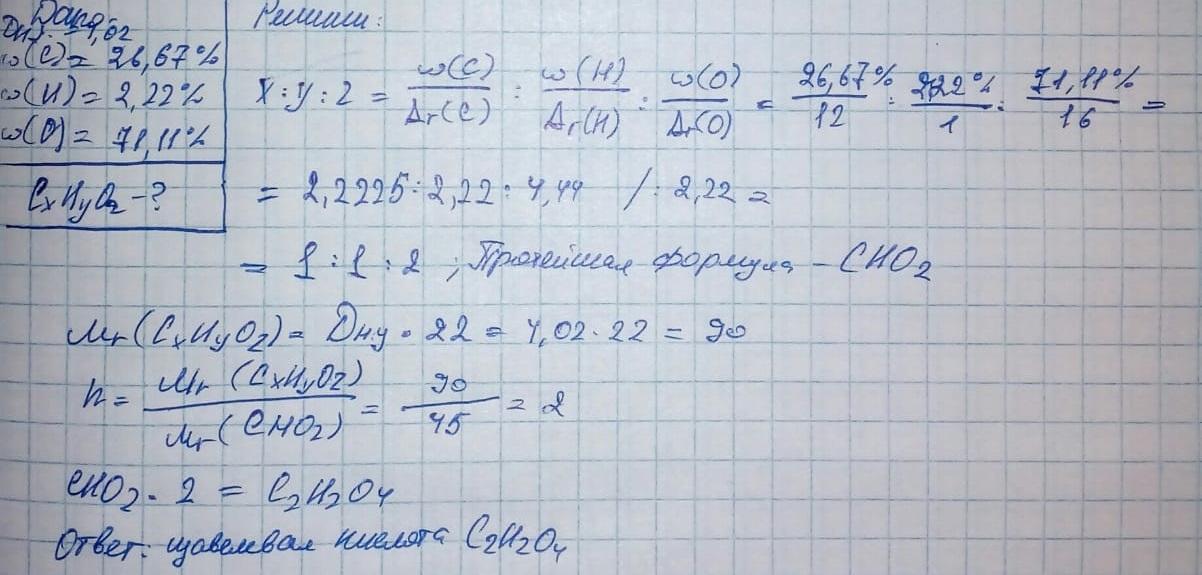 Дано: Решение:
Dн.у. = 4,02
ω(C) = 26,67%
ω(H) = 2,22%
ω(O) = 71,11%
CxHyOz - ?
X : y : z = ω(C)/Ar(C) : ω(H)/Ar(H) : ω(O)/Ar(O) = 26,67%/12 : 2,22%/1 : 71,11%/16 =
= 2,2225 : 2,22 : 4,44 / : 2,22 =
= 1 : 1 : 2 ; Простейшая формула - CHO₂
Mr(CxHyOz) = Dн.у • 22 = 4,02 · 22 = 90
n = Mr(CxHyOz)/Mr(CHO₂) = 90/45 = 2
CHO₂ · 2 = C₂H₂O₄
Ответ: щавелвая кислота C₂H₂O₄